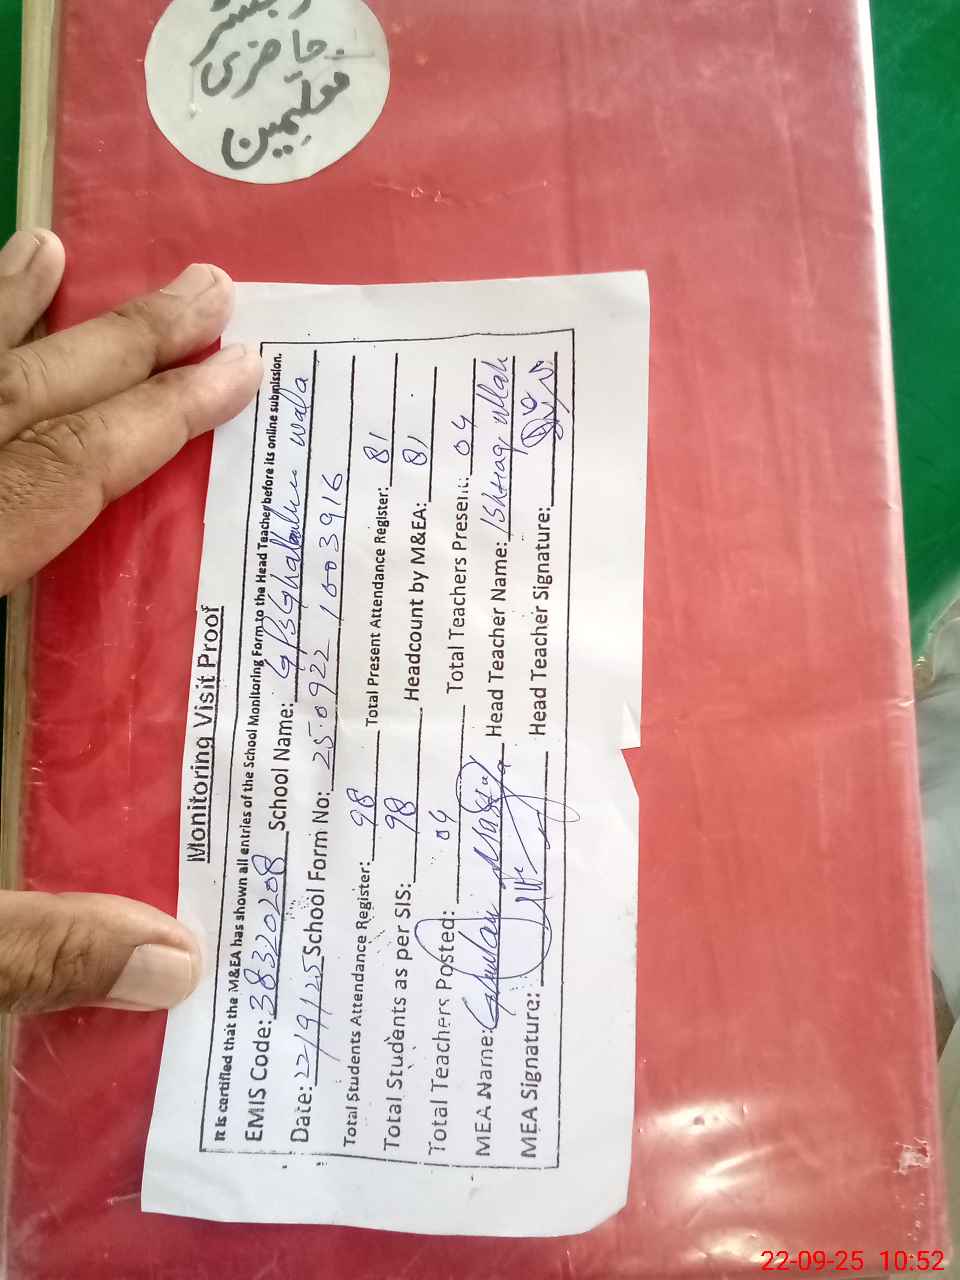 رجسٹر
حاضری
معلمین
Monitoring Visit Proof
It is certified that the M&EA has shown all entries of the School Monitoring Form to the Head Teacher before its online submission.
EMIS Code: 38320208 School Name: GPS Ghallowala
Date: 22/9/25 School Form No: 25.0922 1003916
Total Students Attendance Register: 98 Total Present Attendance Register: 81
Total Students as per SIS: 98 Headcount by M&EA: 81
Total Teachers Posted: 04 Total Teachers Present: 04
MEA Name: Head Teacher Name: Ishtiaq ullah
MEA Signature: Head Teacher Signature:
22-09-25 10:52